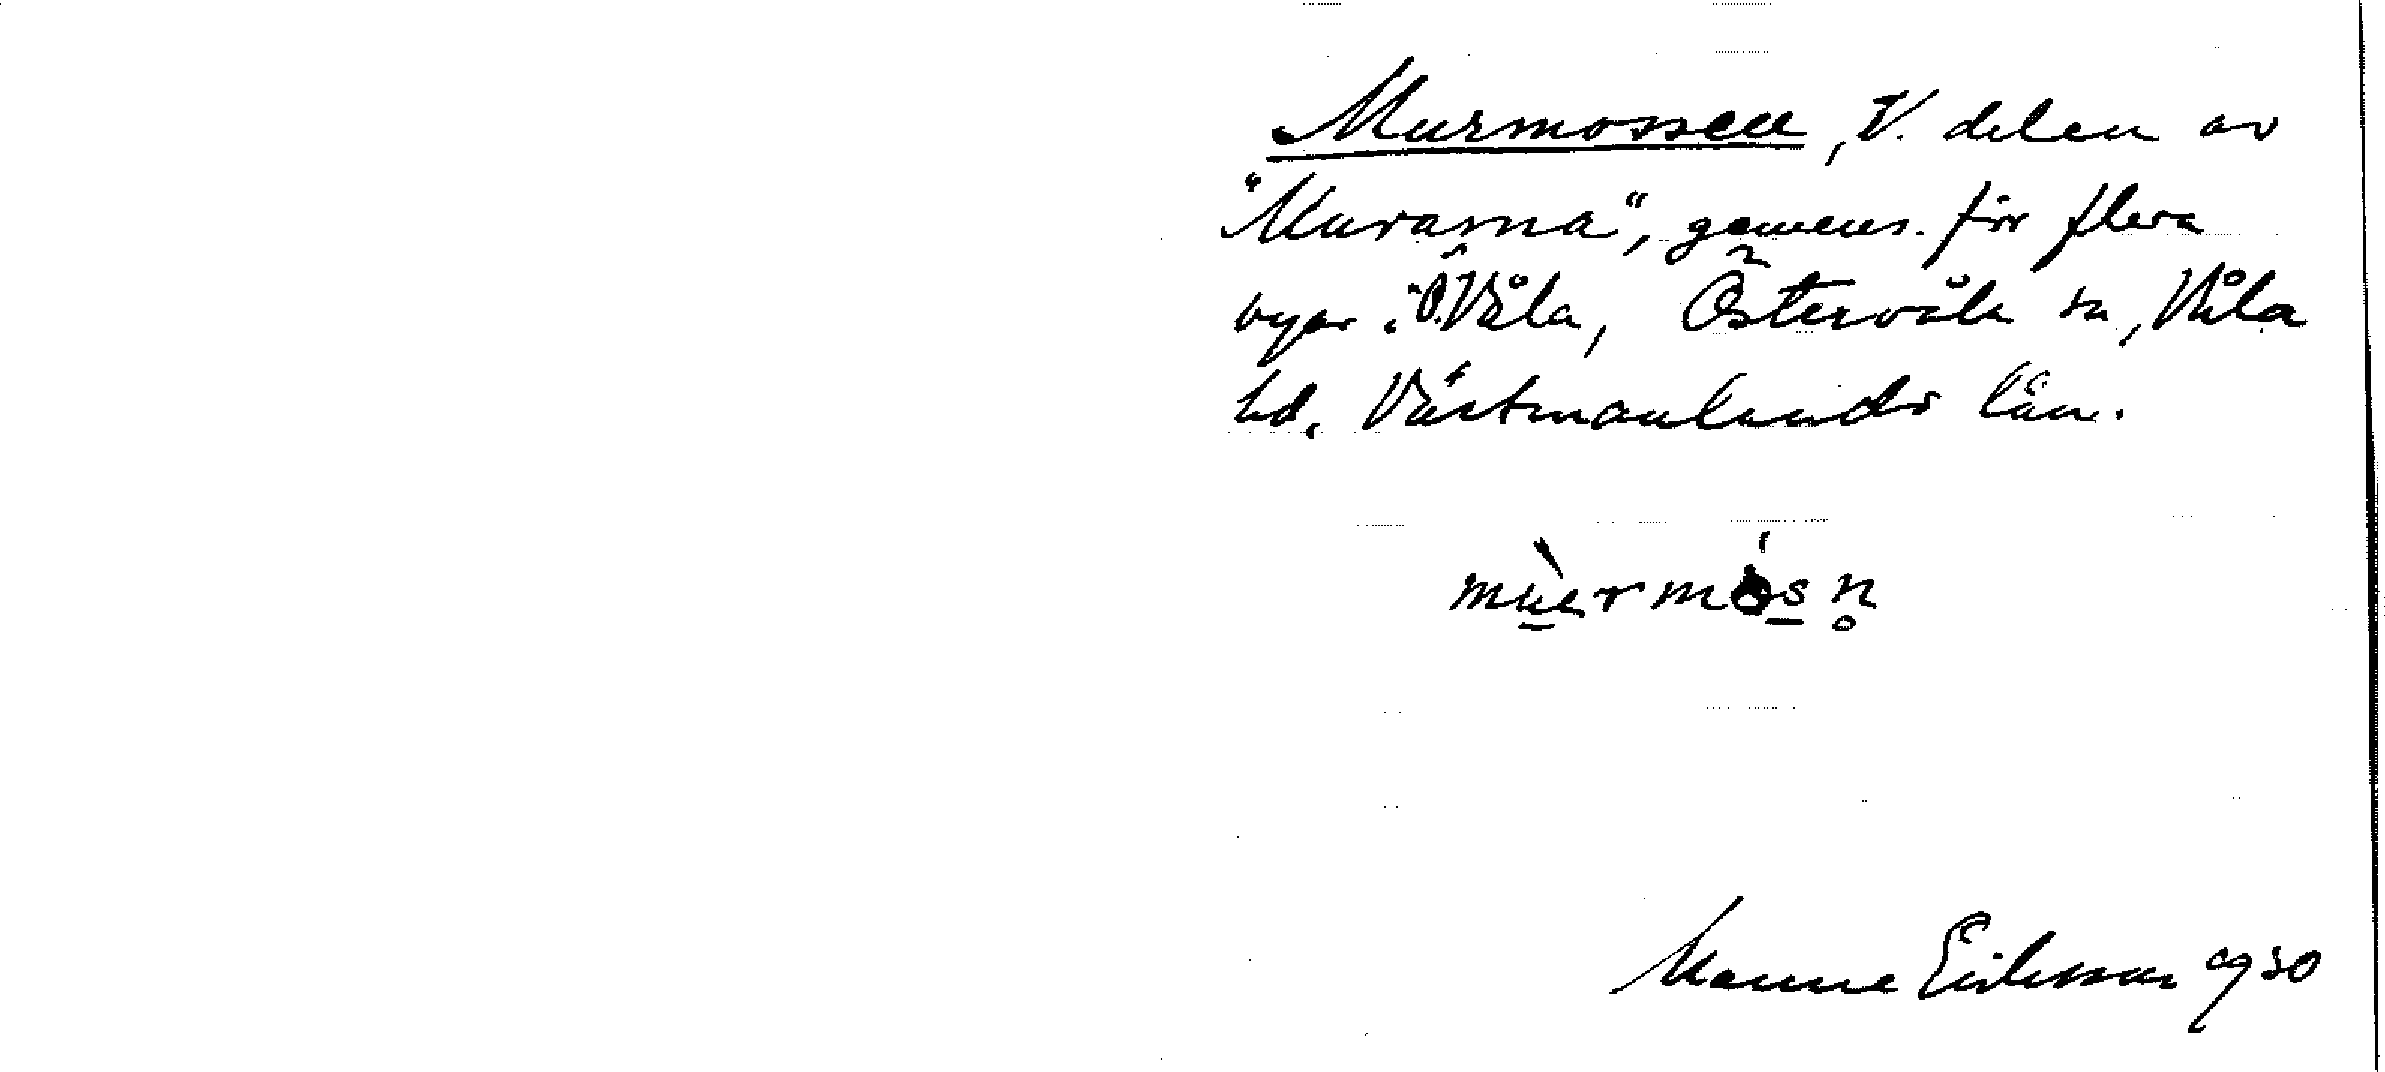 Murmossen, V. delen av
"Murarna", gemens. för flera
byar i Ö. Våla, Östervåla sn, Våla
hd, Västmanlands län.
mùermósn̥
Manne Eriksson 1930